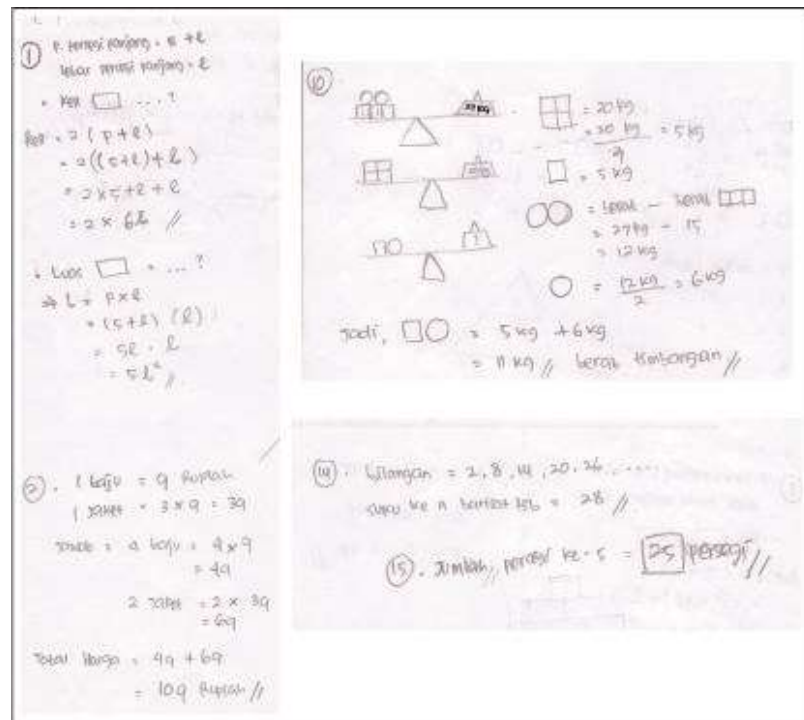 ① P. persegi panjang = 5 + l
lebar persegi panjang = l
• Kel ▭ ... ?
Kel = 2 ( p + l )
= 2 ((5+l) + l)
= 2 x 5 + l + l
= 2 x 6l //
• Luas ▭ = ... ?
⇒ L = p x l
= (5+l) (l)
= 5l . l
= 5l² //
②. 1 baju = q Rupiah
1 jaket = 3 x q = 3q
4 baju = 4 x q
= 4q
2 jaket = 2 x 3q
= 6q
Total Harga = 4q + 6q
= 10q Rupiah //
⑩.
27 kg
= 20 kg
= 20 kg = 5 kg
□ = 5 kg
○○ = berat - berat
= 27 kg - 15
= 12 kg
?
○ = 12 kg = 6 kg
2
Jadi, □○ = 5 kg + 6 kg
= 11 kg // berat timbangan //
⑭. bilangan = 2, 8, 14, 20, 26, .....
suku ke n = 28 //
⑮. Jumlah, persegi ke-5 = 25 persegi //